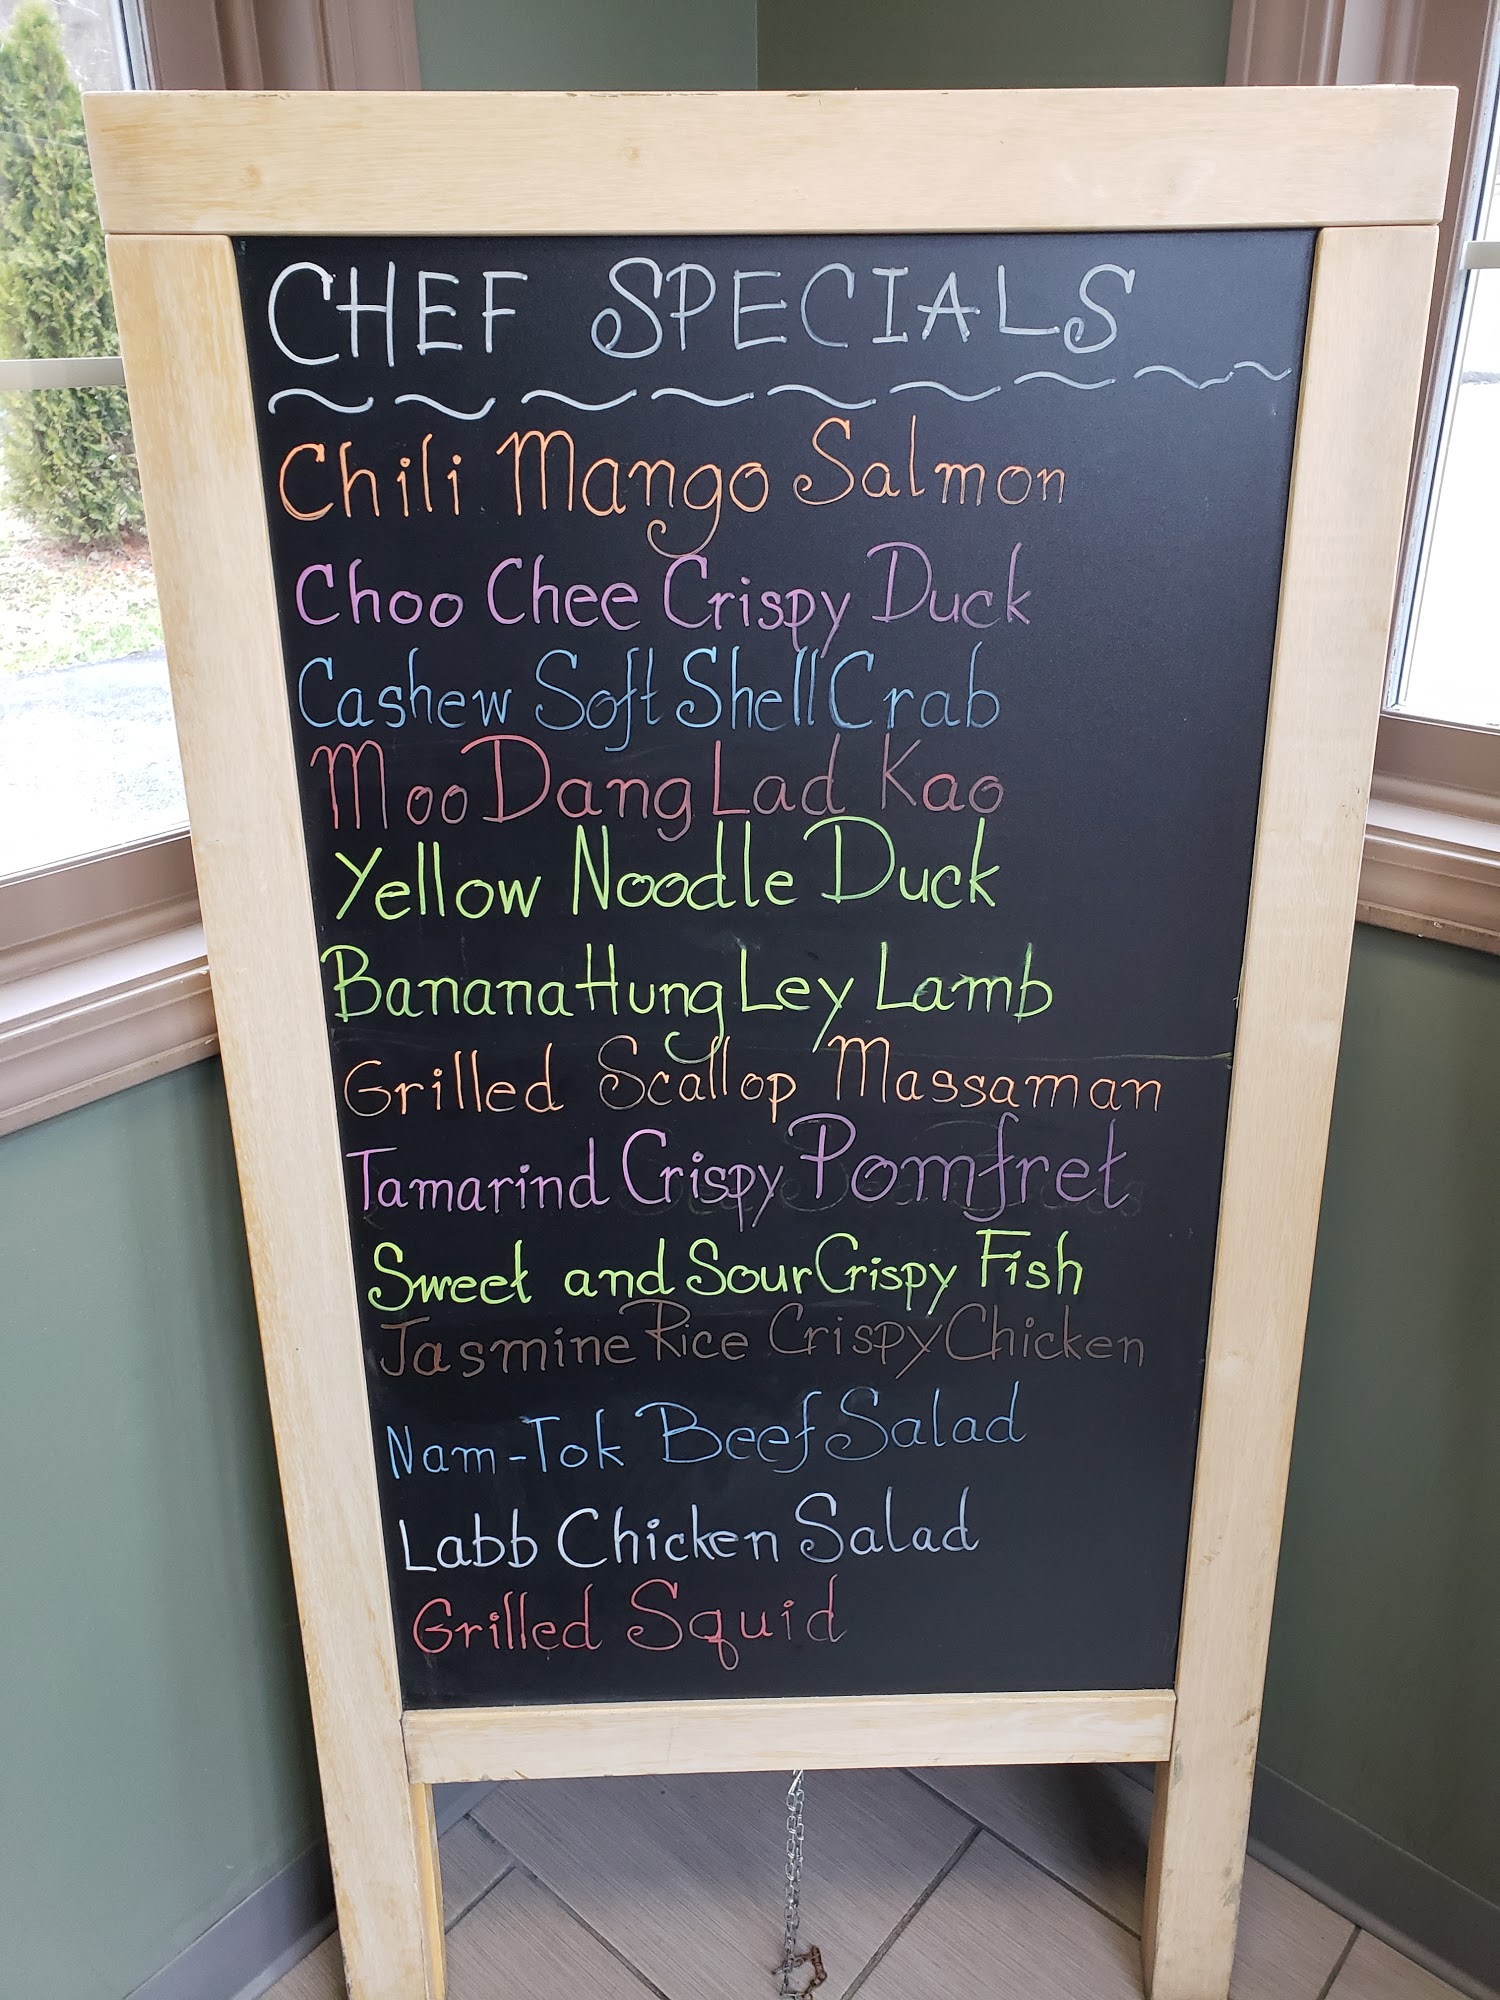 CHEF SPECIALS
Chili Mango Salmon
Choo Chee Crispy Duck
Cashew Soft Shell Crab
Moo Dang Lad Kao
Yellow Noodle Duck
Banana Hung Ley Lamb
Grilled Scallop Massaman
Tamarind Crispy Pomfret
Sweet and Sour Crispy Fish
Jasmine Rice Crispy Chicken
Nam-Tok Beef Salad
Labb Chicken Salad
Grilled Squid